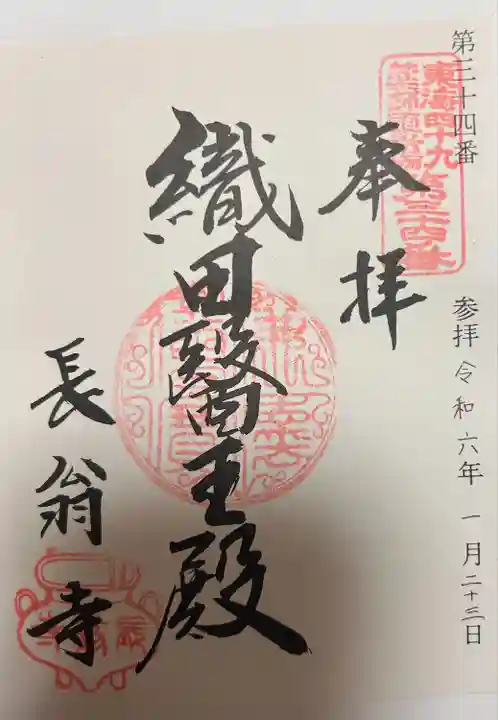 第三十四番
参拝 令和六年 一月二十二日
東海四十九
薬師霊場第三十四番
奉拝
織田醫王殿
長翁寺